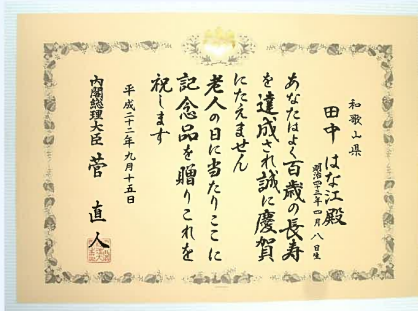 和歌山県
田中 はな江殿
明治四三年四月八日生
あなたはよく百歳の長寿
を達成され誠に慶賀
にたえません
老人の日に当たりここに
記念品を贈りこれを
祝します
平成二十二年九月十五日
内閣総理大臣 菅 直人